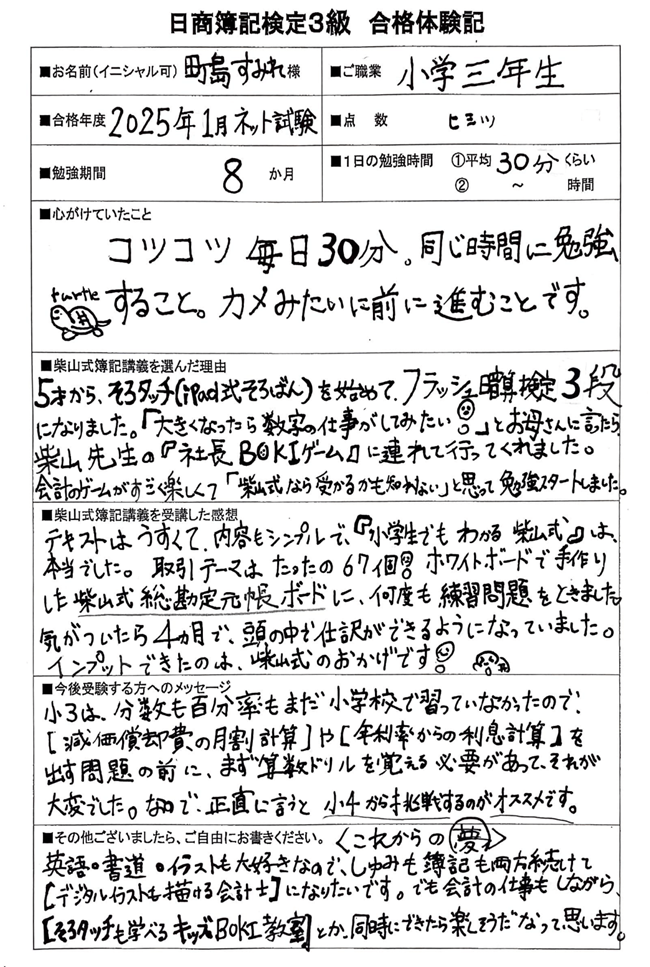 日商簿記検定3級 合格体験記
■お名前(イニシャル可) 町島すみれ様
■ご職業 小学三年生
■合格年度 2025年1月ネット試験
■点 数 ヒミツ
■勉強期間 8 か月
■1日の勉強時間 ①平均30分くらい
② ~ 時間
■心がけていたこと
コツコツ 毎日30分。同じ時間に勉強
turtle すること。カメみたいに前に進むことです。
■柴山式簿記講義を選んだ理由
5才から、そろタッチ(iPad式そろばん)を始めて、フラッシュ暗算検定3段
になりました。「大きくなったら数字の仕事がしてみたい!」とお母さんに言ったら
柴山先生の『社長BOKIゲーム』に連れて行ってくれました。
会計のゲームがすごく楽しくて「柴山式なら受かるかも知れない」と思って勉強スタートしました。
■柴山式簿記講義を受講した感想
テキストはうすくて、内容もシンプルで、『小学生でもわかる柴山式』は、
本当でした。取引テーマはたったの67個!! ホワイトボードで手作り
した柴山式総勘定元帳ボードに、何度も練習問題をときました。
気がついたら4ヵ月で、頭の中で仕訳ができるようになっていました。
インプットできたのは、柴山式のおかげです!
■今後受験する方へのメッセージ
小3は、分数も百分率もまだ小学校で習っていなかったので、
[減価償却費の月割計算]や[年利率からの利息計算]を
出す問題の前に、まず算数ドリルを覚える必要があって、それが
大変でした。なので、正直に言うと 小4から挑戦するのがオススメです。
■その他ございましたら、ご自由にお書きください。 <これからの夢>
英語・書道・イラストも大好きなので、しゅみも簿記も両方続けて
[デジタルイラストも描ける会計士]になりたいです。でも会計の仕事もしながら、
[そろタッチも学べるキッズBOKI教室]とか、同時にできたら楽しそうだなって思います。